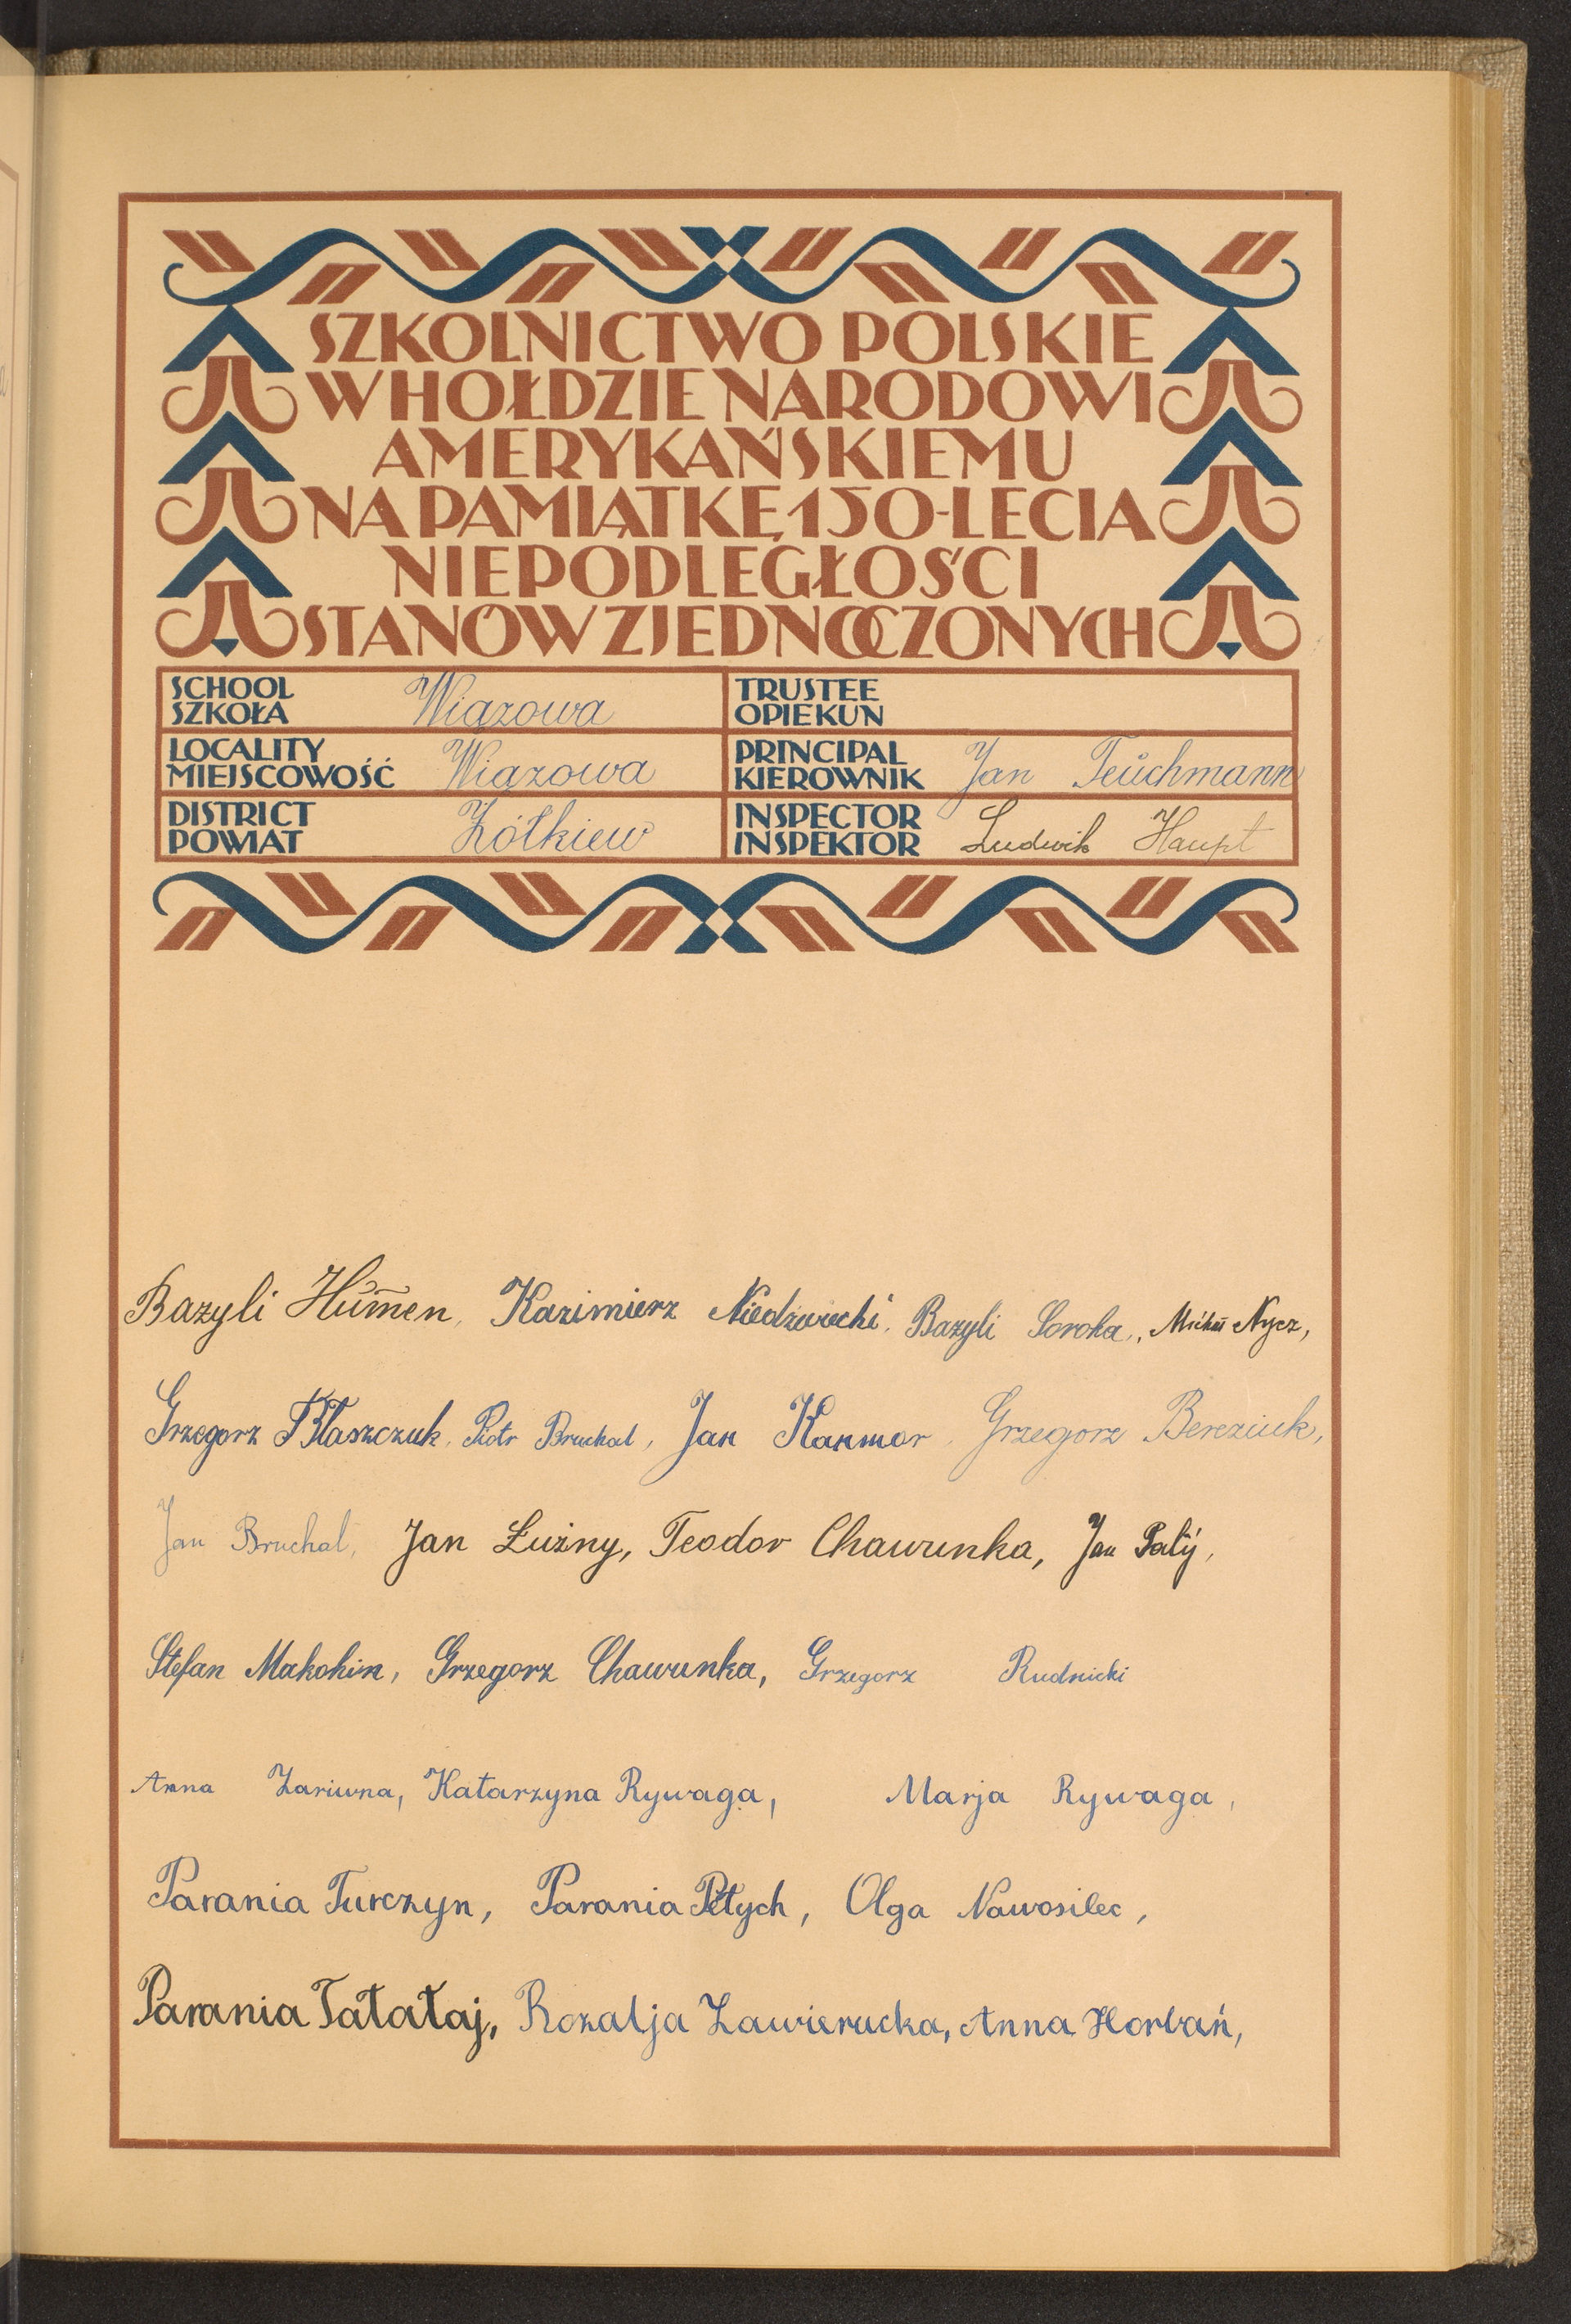 SZKOLNICTWO POLSKIE
W HOŁDZIE NARODOWI
AMERYKAŃSKIEMU
NA PAMIĄTKĘ 150-LECIA
NIEPODLEGŁOŚCI
STANÓW ZJEDNOCZONYCH
SCHOOL
SZKOŁA Wiązowa
TRUSTEE
OPIEKUN
LOCALITY
MIEJSCOWOŚĆ Wiązowa
PRINCIPAL
KIEROWNIK Jan Teuchmann
DISTRICT
POWIAT Żółkiew
INSPECTOR
INSPEKTOR Ludwik Haupt
Bazyli Humen, Kazimierz Niedźwiecki, Bazyli Soroka, Nycz,
Grzegorz Błaszczuk, Piotr Bruchal, Jan Kanmor, Grzegorz Bereziuk,
Jan Bruchal, Jan Łużny, Teodor Chawunka, Jan Palij,
Stefan Makohin, Grzegorz Chawunka, Grzegorz Rudnicki
Anna Zariwna, Katarzyna Rywaga, Marja Rywaga,
Parania Turczyn, Parania Petych, Olga Nawosilec,
Parania Tatataj, Rozalja Zawierucka, Anna Horbań,